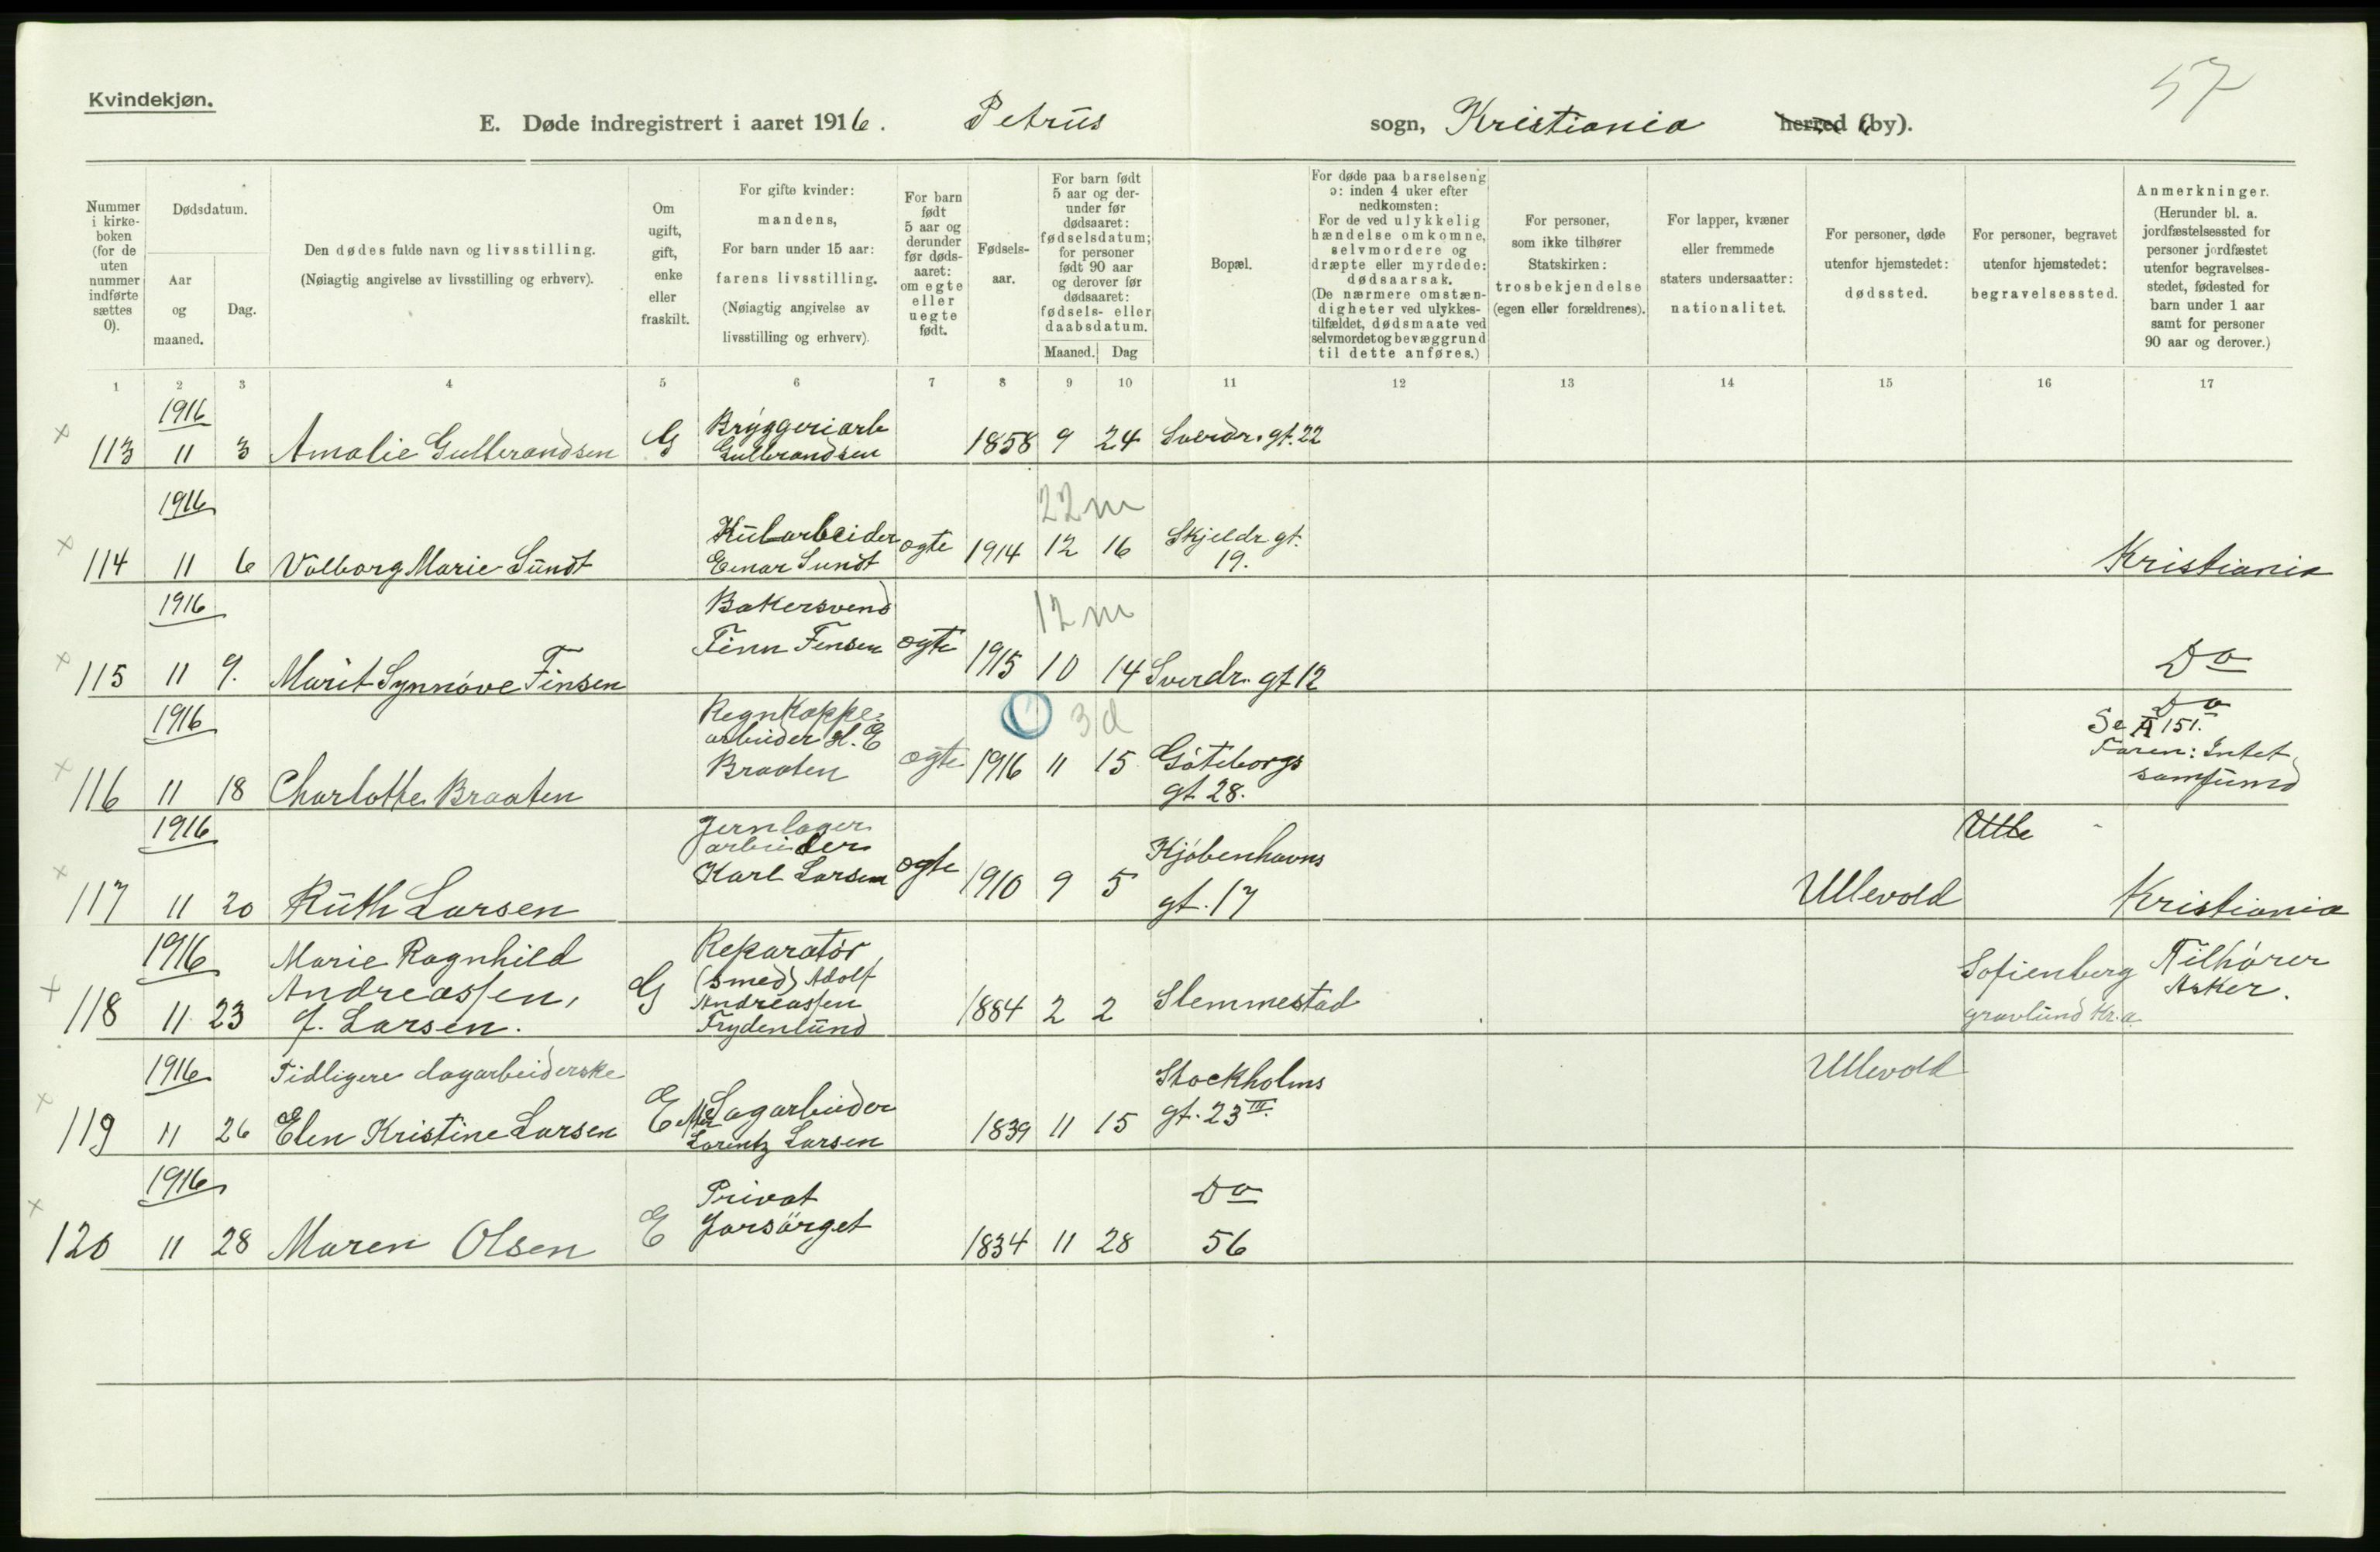 57
Kvindekjøn.
E. Døde indregistrert i aaret 1916. Petrus sogn, Kristiania herred (by).
Nummer i kirkeboken (for de uten nummer indførte sættes 0).
Dødsdatum.
Aar og maaned.
Dag.
Den dødes fulde navn og livsstilling.
(Nøiagtig angivelse av livsstilling og erhverv).
Om ugift, gift, enke eller fraskilt.
For gifte kvinder: mandens,
For barn under 15 aar: farens livsstilling.
(Nøiagtig angivelse av livsstilling og erhverv).
For barn født 5 aar og derunder før dødsaaret: om egte eller uegte født.
Fødselsaar.
For barn født 5 aar og derunder før dødsaaret: fødselsdatum; for personer født 90 aar og derover før dødsaaret: fødsels- eller daabsdatum.
Maaned. Dag
Bopæl.
For døde paa barselseng ɔ: inden 4 uker efter nedkomsten:
For de ved ulykkelig hændelse omkomne, selvmordere og dræpte eller myrdede: dødsaarsak.
(De nærmere omstændigheter ved ulykkestilfældet, dødsmaate ved selvmordet og bevæggrund til dette anføres.)
For personer, som ikke tilhører Statskirken: trosbekjendelse (egen eller forældrenes).
For lapper, kvæner eller fremmede staters undersaatter: nationalitet.
For personer, døde utenfor hjemstedet: dødssted.
For personer, begravet utenfor hjemstedet: begravelsessted.
Anmerkninger.
(Herunder bl. a. jordfæstelsessted for personer jordfæstet utenfor begravelsesstedet, fødested for barn under 1 aar samt for personer 90 aar og derover.)
1 2 3 4 5 6 7 8 9 10 11 12 13 14 15 16 17
1916
× 113 11 3 Amalie Gulbrandsen G Bryggeriarb Gulbrandsen 1858 9 24 Sverdr. gt. 22
1916 22 m
× 114 11 6 Valborg Marie Sundt Kularbeider Einar Sundt ogte 1914 12 16 Skjeldr gt. 19. Kristiania
1916 12 m
× 115 11 9. Marit Synnöve Finsen Bakersvend Finn Finsen ogte 1915 10 14 Sverdr. gt 12 Do
1916 3 d
× 116 11 18 Charlotte Braaten Regnkappearbeider H. E Braaten ogte 1916 11 15 Göteborgs gt 28. Do Se A 151. Faren: Intet samfund
1916 Ulle
× 117 11 20 Ruth Larsen Jernlager arbeider Karl Larsen ogte 1910 9 5 Kjöbenhavns gt. 17 Ullevold Kristiania
1916
× 118 11 23 Marie Ragnhild Andreassen, f. Larsen. G Reparatör (smed) Adolf Andreassen Frydenlund 1884 2 2 Slemmestad Sofienberg gravlund Kr.a. Tilhörer Asker.
1916
× 119 11 26 Tidligere dagarbeiderske Elen Kristine Larsen E After Sagarbeider Lorentz Larsen 1839 11 15 Stockholms gt. 23 III. Ullevold
1916
× 120 11 28 Maren Olsen E Privat forsörget 1834 11 28 Do 56